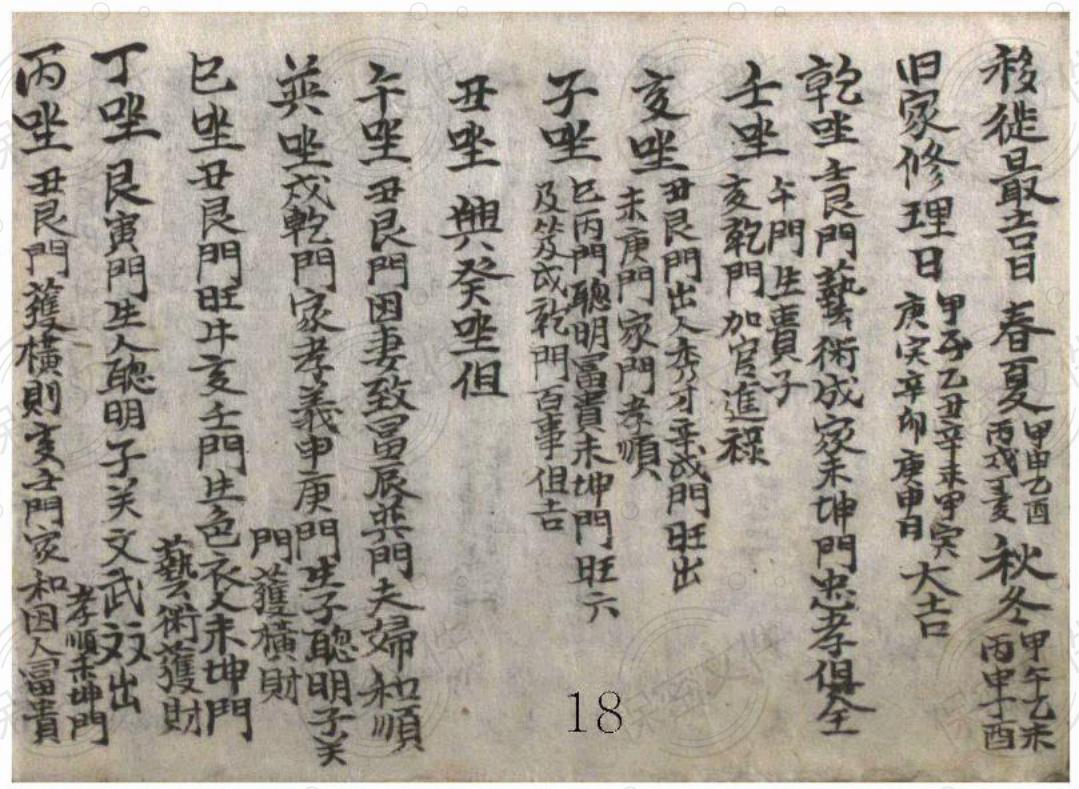 移徙最吉日 春夏 甲申乙酉 丙戌丁亥 秋冬 甲午乙未 丙申丁酉
旧家修理日 甲子乙丑辛未甲寅 庚寅辛卯庚申日 大吉
乾坐 壬艮門藝術成家未坤門忠孝俱全
壬坐 午門生貴子 亥乾門加官進祿
亥坐 丑艮門出人秀才辛戌門旺出 未庚門家門孝順
子坐 巳丙門聰明冨貴未坤門旺六 及戌乾門百事但吉
丑坐 興癸坐但
午坐 丑艮門因妻致冨辰巽門夫婦和順
巽坐 戌乾門家孝義申庚門生子聰明子关 門獲橫財
巳坐 丑艮門旺牛亥壬門生色衣人未坤門 藝術獲財
丁坐 艮寅門生人聰明子关文武双出
丙坐 丑艮門獲橫則亥壬門家和因人冨貴 孝順未坤門
18